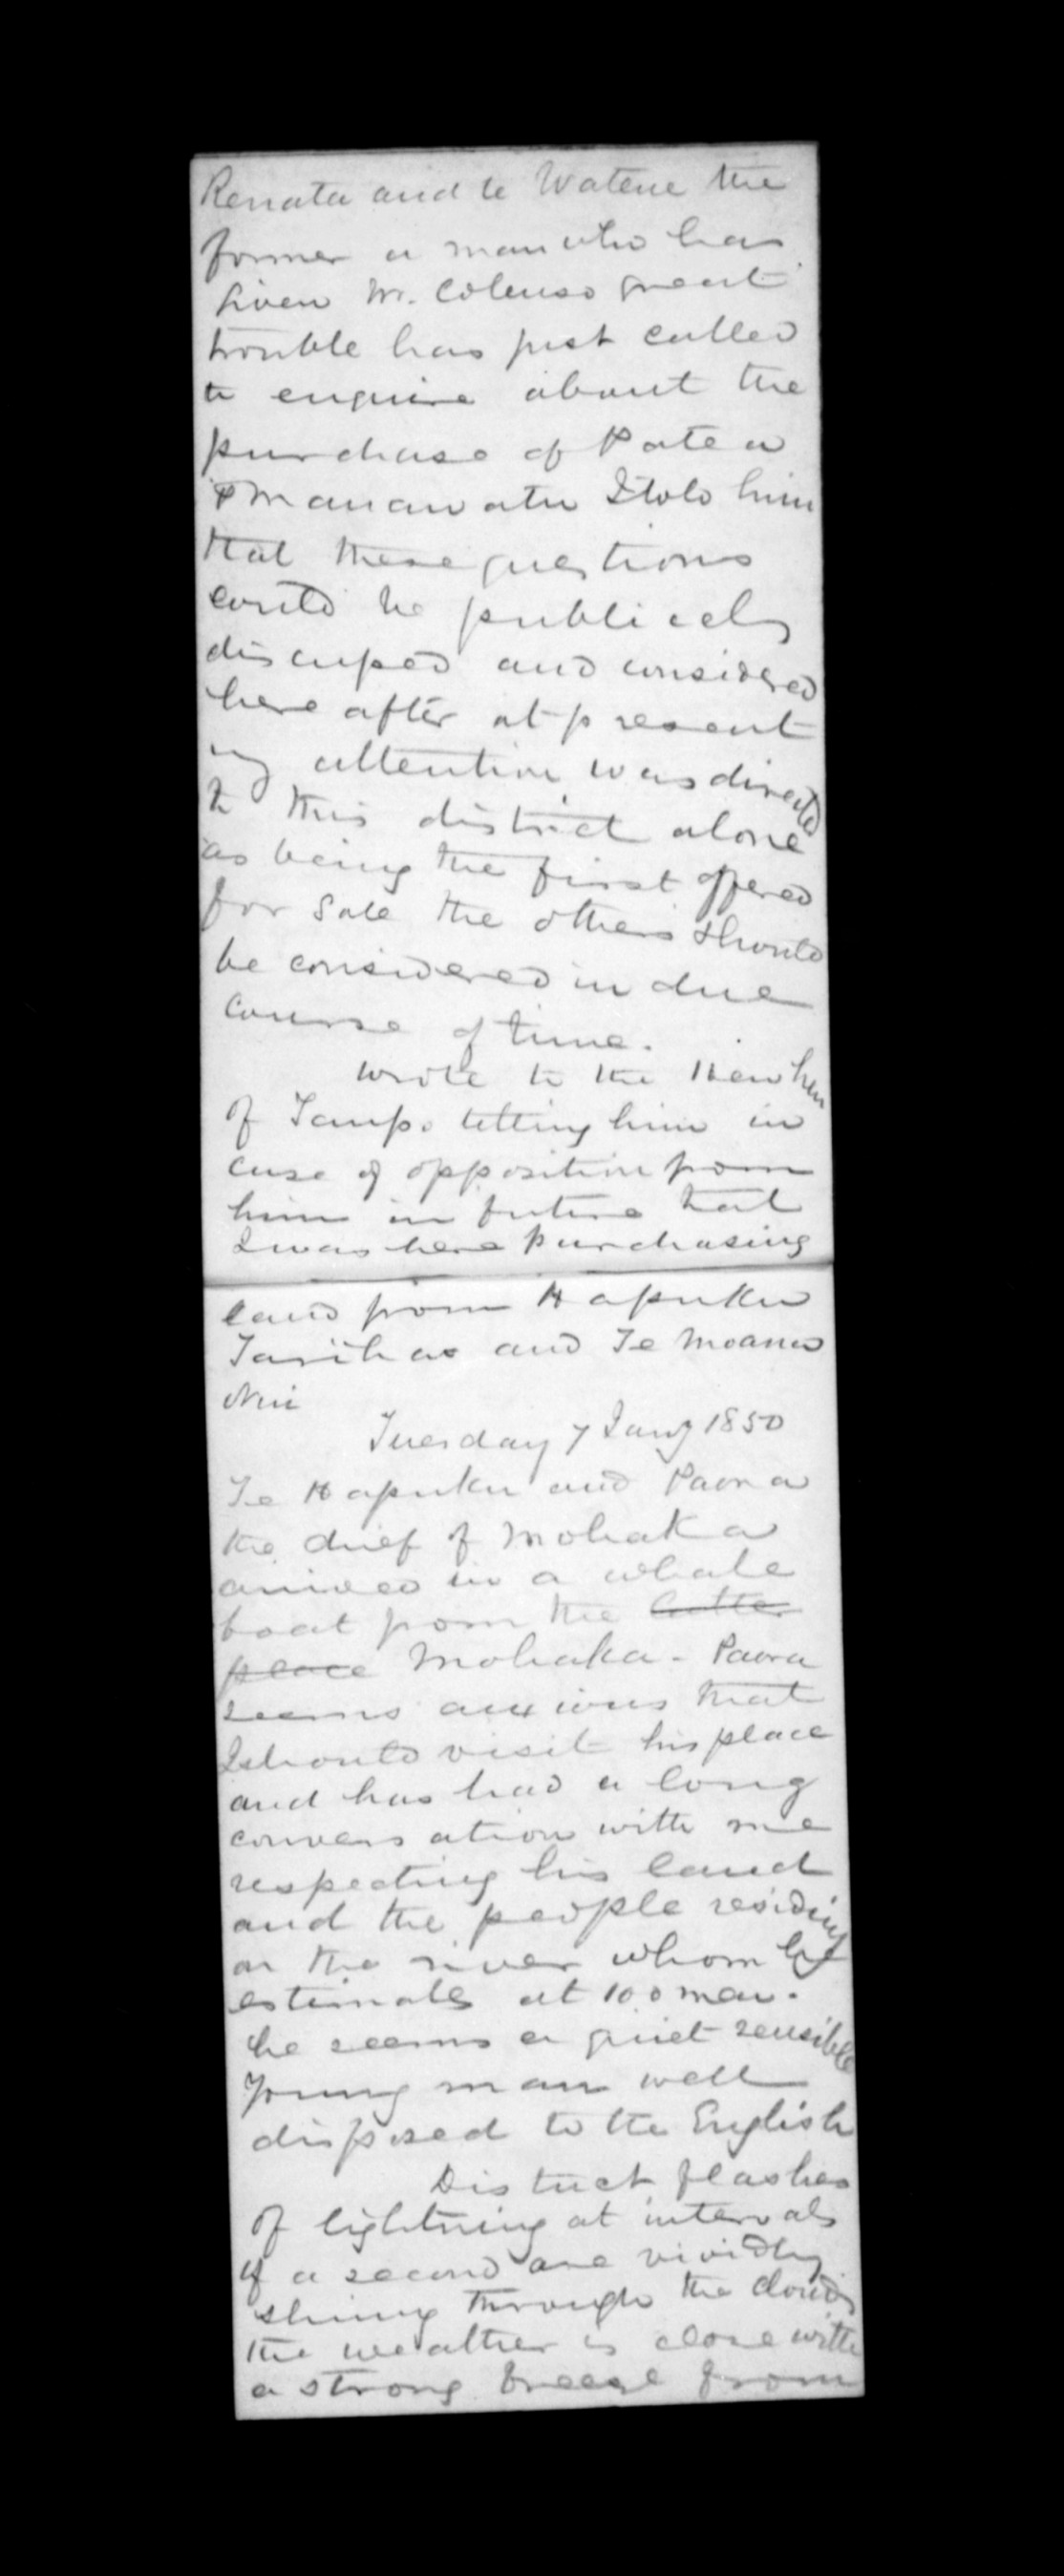 Renata and te Watene the
former a man who has
given Mr. Colenso great
trouble has just called
to enquire about the
purchase of Patea
& Manawatu I told him
that these questions
could be publicely
discussed and considered
here after at present
my attention was directed
to this district alone
as being the first offered
for sale the others should
be considered in due
course of time.
Wrote to the Heuheu
of Taupo telling him in
case of opposition from
him in future that
I was here purchasing
land from Hapuku
Tareha and Te Moana
Nui
Tuesday 7 Jany 1850
Te Hapuku and Paora
the chief of Mohaka
arrived in a whale
boat from the latter
place Mohaka - Paora
seems anxious that
I should visit his place
and has had a long
conversation with me
respecting his land
and the people residing
on the river whom he
estimates at 100 men.
he seems a quiet sensible
young man well
disposed to the English
Distinct flashes
of lightning at intervals
of a second are vividly
shining through the clouds
the weather is close with
a strong breeze from